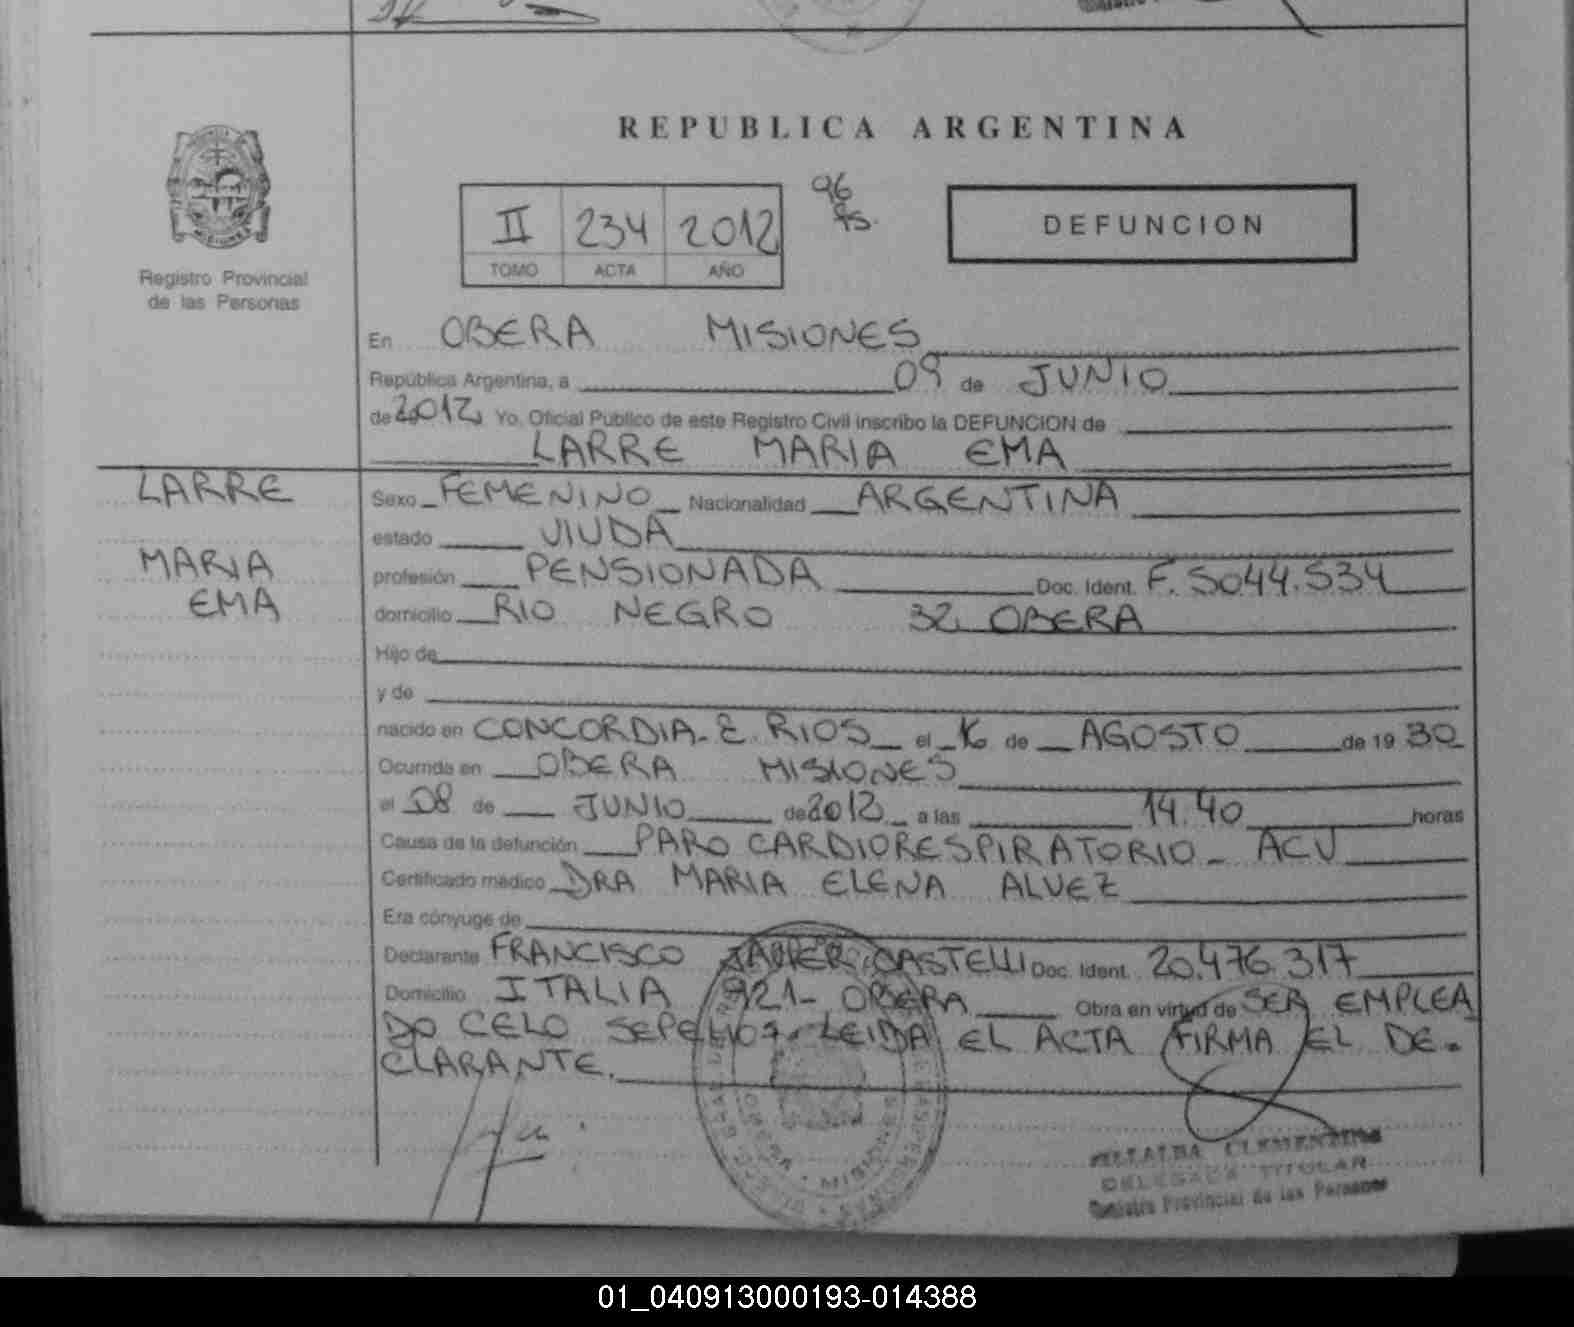 REPUBLICA ARGENTINA
Registro Provincial
de las Personas
II 234 2012
TOMO ACTA AÑO
96
DEFUNCION
En OBERA MISIONES
República Argentina, a 09 de JUNIO
de 2012 Yo, Oficial Público de este Registro Civil inscribo la DEFUNCION de
LARRE MARIA EMA
LARRE
MARIA
EMA
Sexo FEMENINO Nacionalidad ARGENTINA
estado VIUDA
profesión PENSIONADA Doc. Ident. F. 5044.534
domicilio RIO NEGRO 32 OBERA
Hijo de
y de
nacido en CONCORDIA - E. RIOS el 16 de AGOSTO de 1930
Ocurrida en OBERA MISIONES
el 08 de JUNIO de 2012 a las 14.40 horas
Causa de la defunción PARO CARDIORESPIRATORIO - ACV
Certificado médico DRA MARIA ELENA ALVEZ
Era cónyuge de
Declarante FRANCISCO JAVIER CASTELLI Doc. Ident. 20.476.317
Domicilio ITALIA 921 - OBERA Obra en virtud de SER EMPLEA
DO CELO SEPELIOS. LEIDA EL ACTA FIRMA EL DE-
CLARANTE.
CLEMENTINA
DELEGADA TITULAR
Registro Provincial de las Personas
OBERA MISIONES
01_040913000193-014388